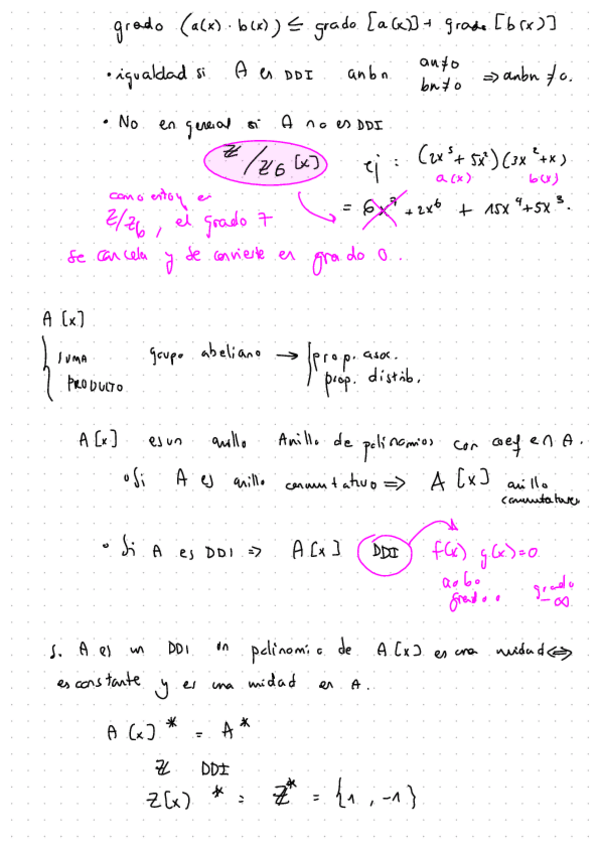 grado (a(x) · b(x)) ≤ grado [a(x)] + grado [b(x)]
· igualdad si A es DDI anbn an≠0 bn≠0 ⇒ anbn ≠0.
· No en general si A no es DDI
Z/Z6 [x] ej: (2x⁵ + 5x²)(3x² + x)
a(x) b(x)
como estoy en
= 6x⁷ + 2x⁶ + 15x⁴ + 5x³.
Z/Z6, el grado 7
se cancela y se convierte en grado 0.
A [x]
SUMA grupo abeliano → prop. asoc.
PRODUCTO prop. distrib.
A[x] es un anillo Anillo de polinomios con coef en A.
· Si A es anillo conmutativo ⇒ A [x] anillo
conmutativo
· Si A es DDI ⇒ A[x] DDI f(x) g(x)=0
a0b0 grado
grado 0 -∞
A es un DDI un polinomio de A[x] es una unidad ⇔
es constante y es una unidad en A.
A [x]* = A*
Z DDI
Z[x]* = Z* = {1, -1}